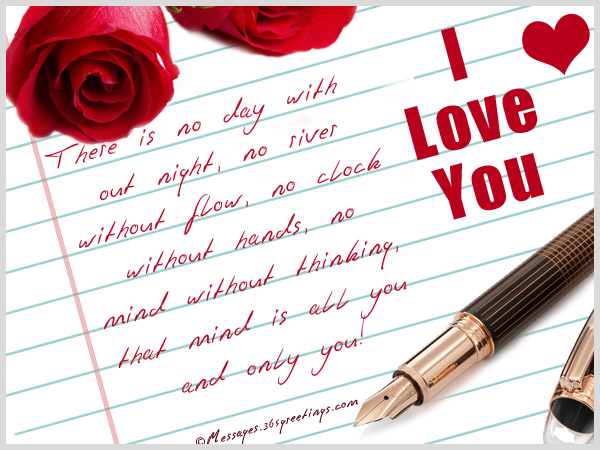 There is no day with
out night, no river
without flow, no clock
without hands, no
mind without thinking,
that mind is all you
and only you!
I
Love
You
©Messages.365greetings.com